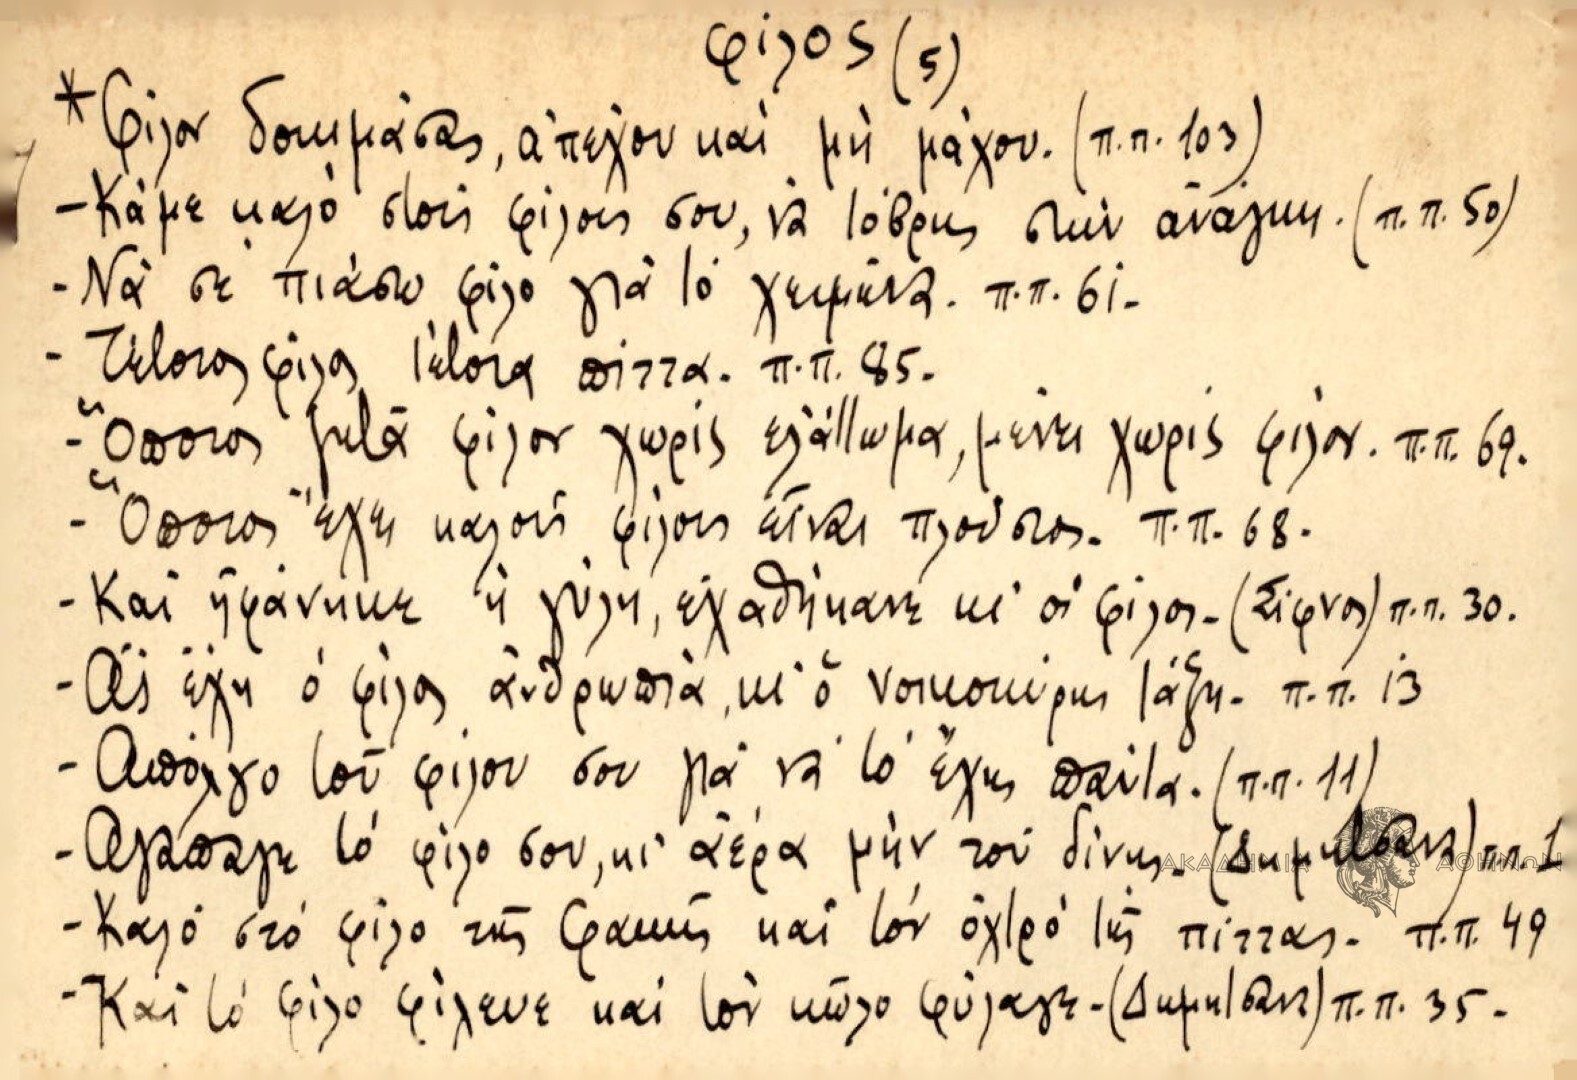 φίλος (5)
* Φίλον δοκιμάσας, ἀπέχου καὶ μὴ μάχου. (π.π. 103)
- Κάμε καλό στούς φίλους σου, νὰ τὄβρης στὴν ἀνάγκη. (π.π. 50)
- Νὰ σέ πιάσω φίλο γιὰ τό χειμῶνα. π.π. 61-
- Τέτοιος φίλος τέτοια πίττα. π.π. 85-
- Ὅποιος ζητᾶ φίλον χωρίς ἐλάττωμα, μένει χωρίς φίλον. π.π. 69.
- Ὅποιος ἔχει καλούς φίλους εἶναι πλούσιος. π.π. 68-
- Καὶ ἠφάνηκε ἡ γύλη, ἐχαθήκανε κι' οἱ φίλοι- (Σίφνος) π.π. 30.
- Ἄς ἔχη ὁ φίλος ἀνθρωπιὰ, κι' ὁ νοικοκύρης τάξη- π.π. 13
- τοῦ φίλου σου γιὰ νὰ τό ἔχης πάντα. (π.π. 11)
- Ἀγάπαγε τό φίλο σου, κι' ἀέρα μὴν τοῦ δίνης- (Δημητσάνα) π.π. 1
- Καλό στό φίλο τῆς φακῆς καὶ τόν ὀχτρό τῆς πίττας- π.π. 49
- Καὶ τό φίλο φίλευε καὶ τόν κῶλο φύλαγε- (Δημητσάνα) π.π. 35-
ΑΚΑΔΗΜΙΑ ΑΘΗΝΩΝ